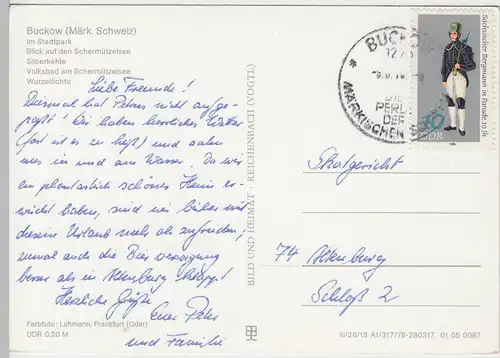 Buckow (Märk. Schweiz)
Im Stadtpark
Blick auf den Schermützelsee
Silberkehle
Volksbad am Schermützelsee
Wurzelfichte
Liebe Freunde!
Diesmal hat Petrus nicht aufge-
paßt! Wir haben herrliches Wetter
(fast ist es zu heiß) und aalen
uns in und am Wasser. Da wir
ein phantastisch schönes Heim er-
wischt haben, sind wir bisher mit
diesem Urlaub mehr als zufrieden,
zumal auch die Bierversorgung
besser als in Altenburg klappt!
Herzliche Grüße
Euer Peter
und Familie
Farbfoto: Lehmann, Frankfurt (Oder)
DDR 0,20 M
BILD UND HEIMAT · REICHENBACH (VOGTL)
BUCKOW
PERLE
DER
MÄRKISCHEN
Sächsischer Bergmann in Parade 19. Jh.
DDR
Skatgericht
74 Altenburg
Schloß 2
III/26/13 A1/317/78-280317 01 05 0087